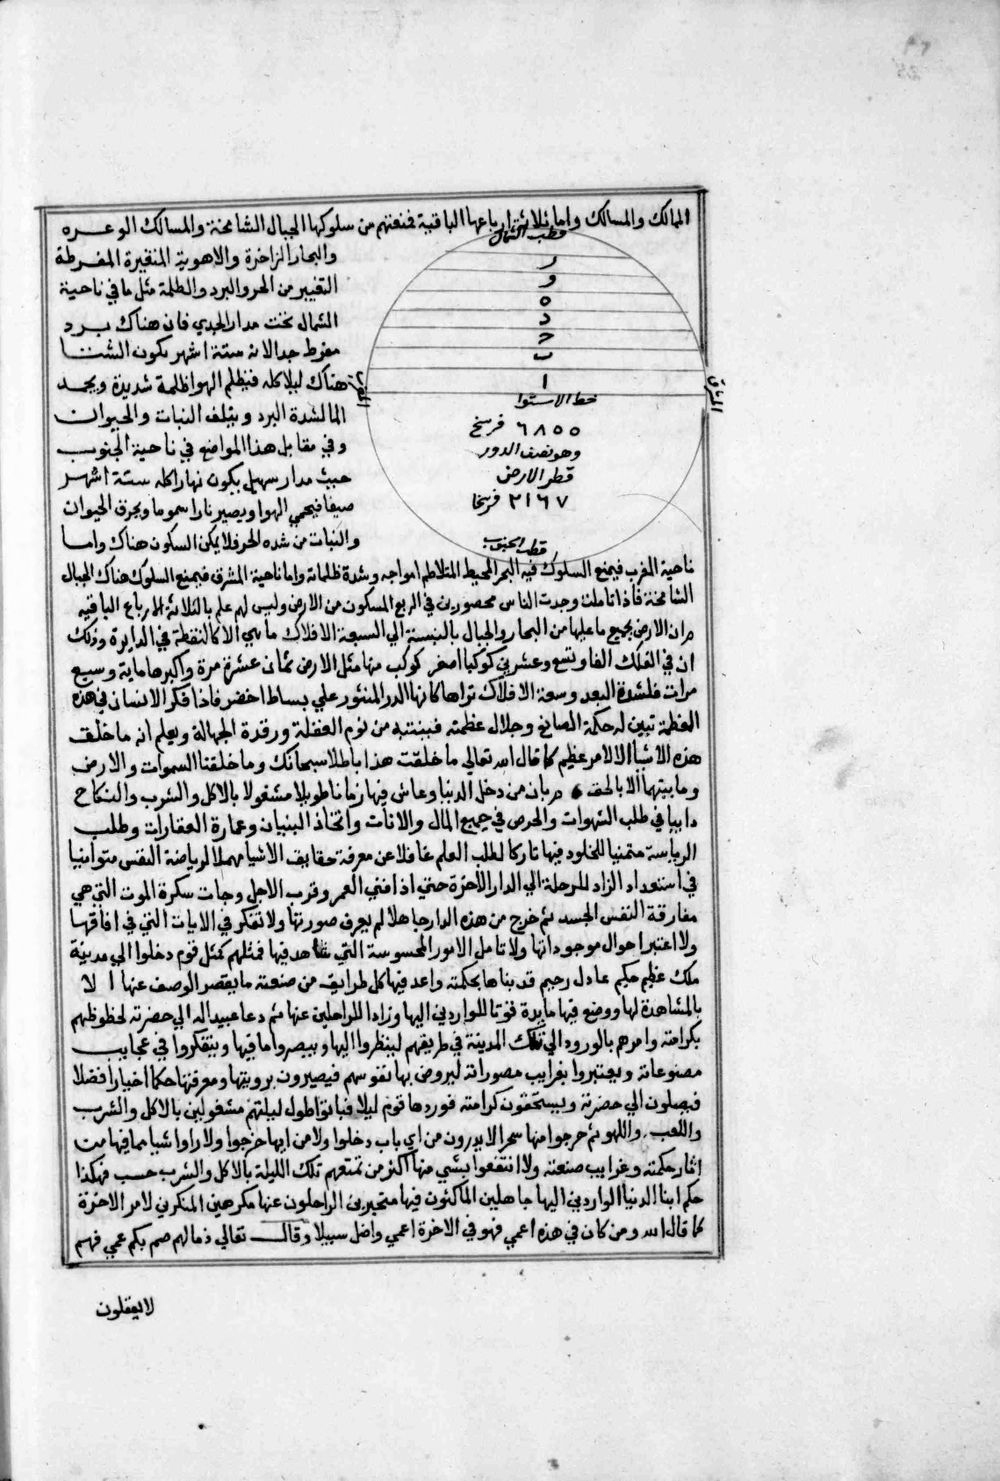 الممالك والمسالك واما ثلاثة ارباعها الباقية فمنعتهم من سلوكها الجبال الشامخة والمسالك الوعره
والبحار الزاخرة والاهوية المتغيرة المفرطة
التغيير من الحر والبرد والظلمة مثل ما في ناحية
الشمال تحت مدار الجدي فان هناك برد
مفرط جدا لانه ستة اشهر يكون الشتا
هناك ليلا كله فيظلم الهوا ظلمة شديدة ويجمد
الما لشدة البرد ويتلف النبات والحيوان
وفي مقابل هذا المواضع في ناحية الجنوب
حيث مدار سهيل يكون نهارا كله ستة اشهر
صيفا فيحمي الهوا ويصير نارا سموما ويحرق الحيوان
والنبات من شده الحر فلا يمكن السكون هناك واما
قطب الشمال
ر
و
ه
د
ج
ب
ا
خط الاستوا
٦٨٥٥ فرسخ
وهو نصف الدور
قطر الارض
٢١٦٧ فرسخا
قطب الجنوب
المشرق
المغرب
ناحية المغرب فيمنع السلوك فيه البحر المحيط المتلاطم امواجه وشدة ظلماته واما ناحية المشرق فيمنع السلوك هناك الجبال
الشامخة فاذا تاملت وجدت الناس محصورين في الربع المسكون من الارض وليس لهم علم بالثلاثة الارباع الباقيه
ثم ان الارض بجميع ما عليها من البحار والجبال بالنسبة الي السبعة الافلاك ما هي الا كالنقطة في الدايرة وذلك
ان في الفلك الفا وتسع وعشرين كوكبا اصغر كوكب منها مثل الارض ثماني عشرة مرة واكبرها ماية وسبع
مرات فلشدة البعد وسعة الافلاك تراها كانها الدر المنثور علي بساط اخضر فاذا فكر الانسان في هذه
العظمة تبين له حكمة الصانع وجلال عظمته فينتبه من نوم الغفلة ورقدة الجهالة ويعلم انه ما خلق
هذه الاشيا الا لامر عظيم كما قال الله تعالي ما خلقت هذا باطلا سبحانك وما خلقنا السموات والارض
وما بينهما الا بالحق ثم بان من دخل الدنيا وعاش فيها زمانا طويلا مشغولا بالاكل والشرب والنكاح
دايبا في طلب الشهوات والحرص في جميع المال والاثاث واتخاذ البنيان وعمارة العقارات وطلب
الرياسة متمنيا للخلود فيها تاركا لطلب العلم غافلا عن معرفة حقايق الاشيا مهملا لرياضة النفس متوانيا
في استعداد الزاد للرحلة الي الدار الاخرة حتي اذا فني العمر وقرب الاجل وجات سكرة الموت التي هي
مفارقة النفس الجسد ثم خرج من هذه الدار جاهلا لم يعرف صورتها ولا تفكر في الايات التي في افاقها
ولا اعتبر احوال موجوداتها ولا تامل الامور المحسوسة التي شاهد فيها فمثلهم كمثل قوم دخلوا الي مدينة
ملك عظيم حكيم عادل رحيم قد بناها بحكمته واعد فيها كل طرايف من صنعته ما يقصر الوصف عنها الا
بالمشاهدة لها ووضع فيها مايدة قوتا للواردين اليها وزادا للراحلين عنها ثم دعا عبيداله الي حضرته لحظوظهم
بكرامته وامرهم بالورود الي تلك المدينة في طريقهم لينظروا اليها ويبصروا ما فيها ويتفكروا في عجايب
مصنوعاته ويعتبروا بغرايب مصوراته ليروض بها نفوسهم فيصيرون برويتها ومعرفتها حكما اخيارا فضلا
فيصلون الي حضرته ويستحقون كرامته فوردها قوم ليلا فباتوا طول ليلتهم مشغولين بالاكل والشرب
واللعب واللهو ثم خرجوا منها سحرا لا يدرون من اي باب دخلوا ولا من ايها خرجوا ولا راوا شيا مما فيها من
اثار حكمته وغرايب صنعته ولا انتفعوا بشي منها اكثر من تمتعهم تلك الليلة بالاكل والشرب حسب فهكذا
حكم ابنا الدنيا الواردين اليها جاهلين الماكثون فيها متحيرين الراحلون عنها مكرهين المنكرين لامر الاخرة
كما قال الله ومن كان في هذه اعمي فهو في الاخرة اعمي واضل سبيلا وقال تعالي ذما لهم صم بكم عمي فهم
لا يعقلون